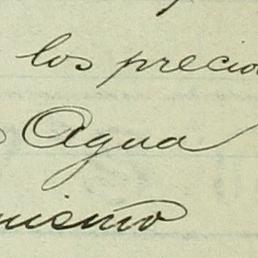 los precio
Agua
mismo